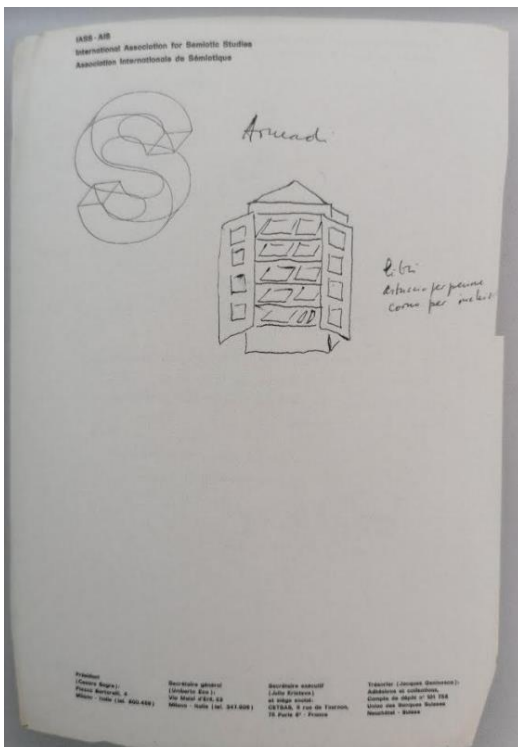 IASS - AIS
International Association for Semiotic Studies
Association Internationale de Sémiotique
Armadi
libri
astuccio per penne
corno per inchios
Président
(Cesare Segre):
Milano - Italie
Secrétaire général
(Umberto Eco):
Milano - Italie (tel. 347.809)
Secrétaire exécutif
(Julia Kristeva)
et siège social:
CETSAS, 6 rue de Tournon,
75 Paris 6e - France
Trésorier (Jacques Geninasca):
Adhésions et cotisations,
Compte de dépôt n°
Union des Banques Suisses
Neuchâtel - Suisse